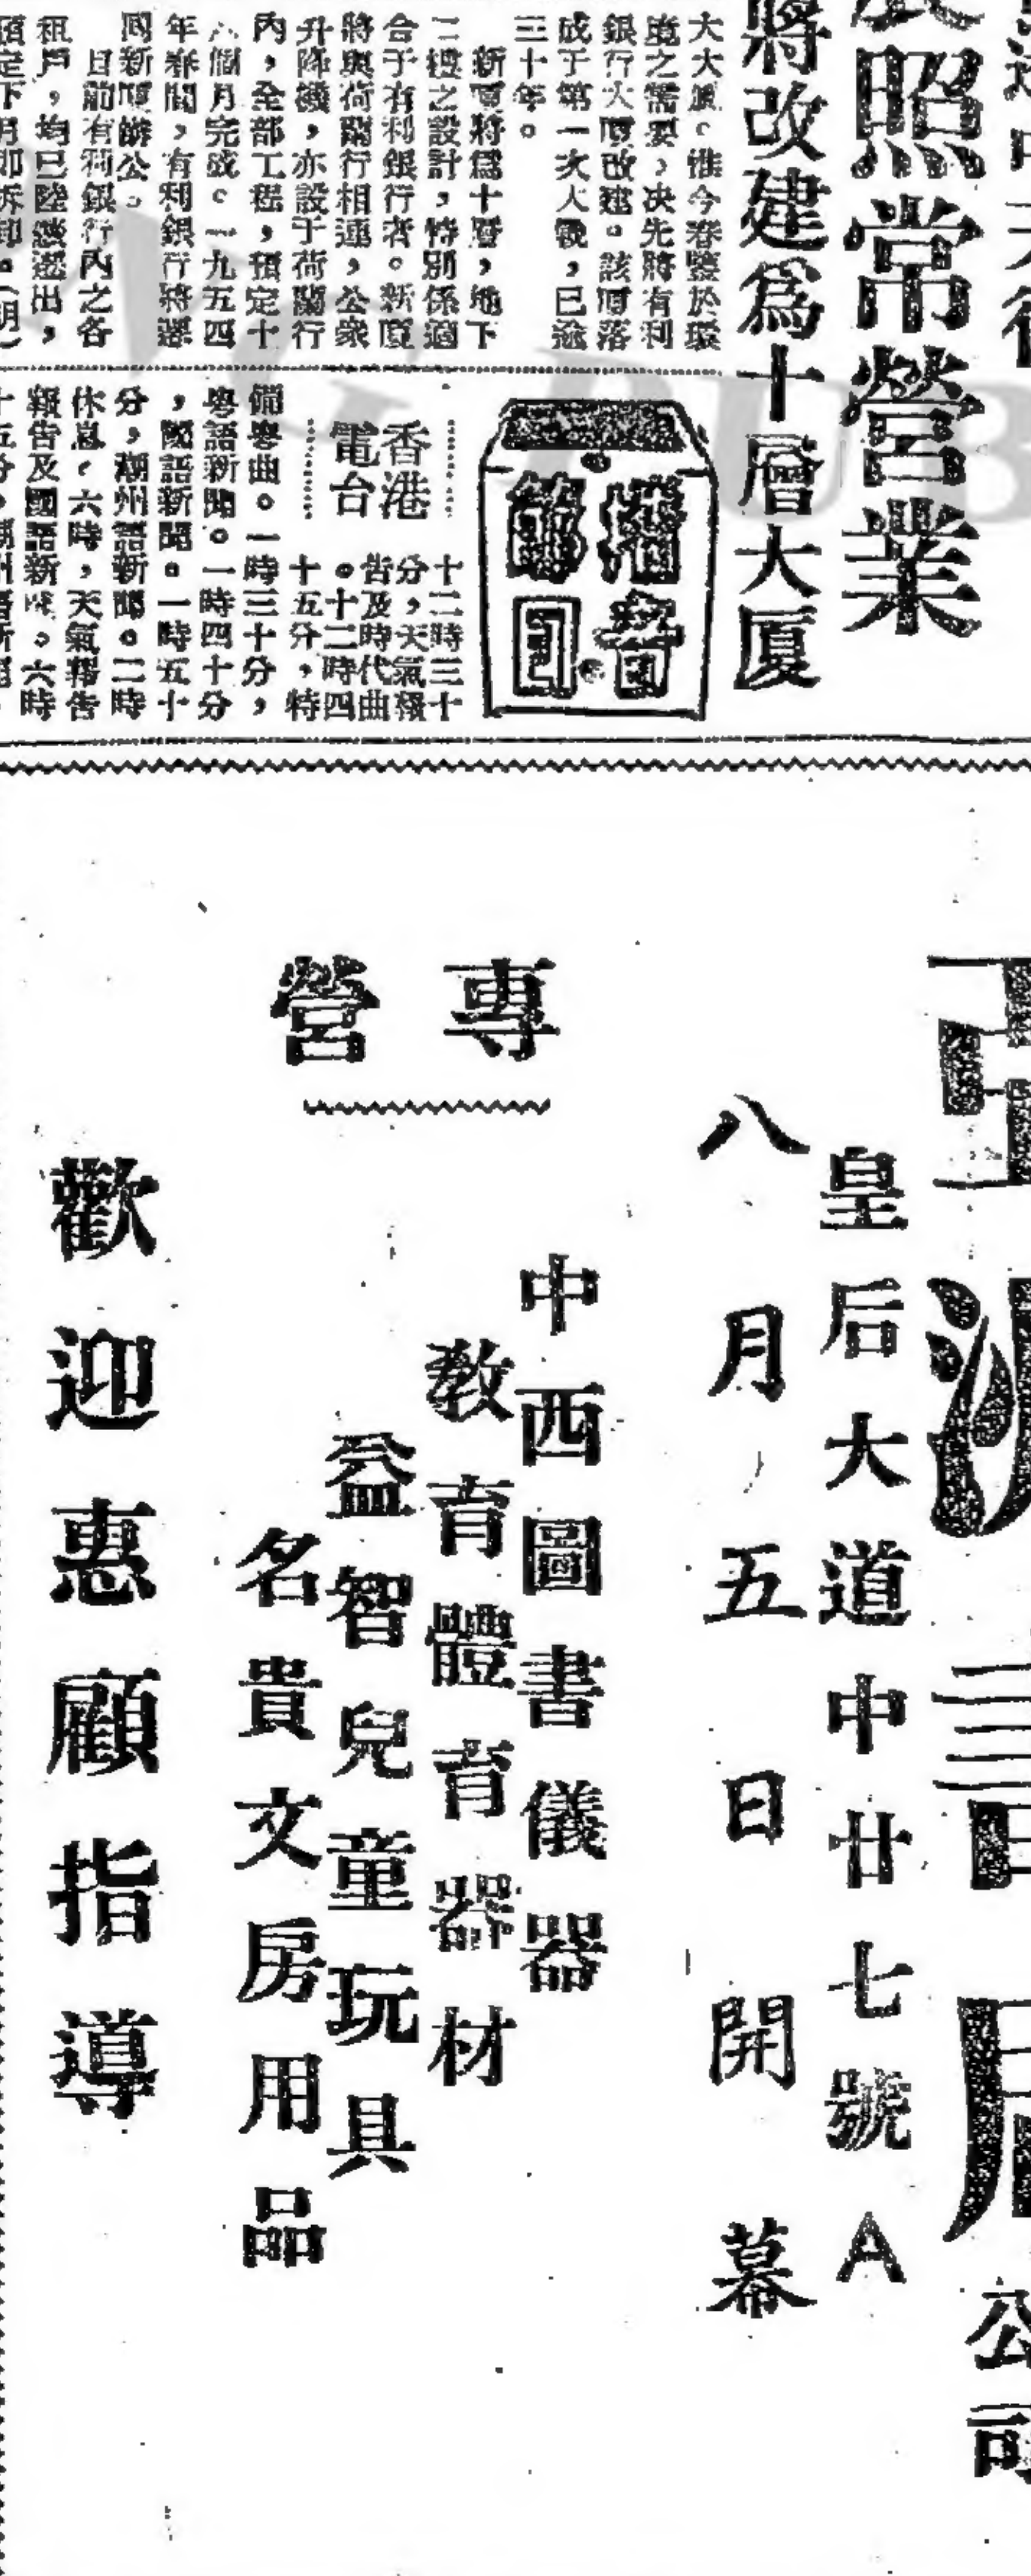 照常營業
將改建爲十層大厦
大大厦。惟今春鑒於環
境之需要,决先將有利
銀行大厦改建。該厦落
成于第一次大戰,已逾
三十年。
新厦將爲十層,地下
二樓之設計,特別係適
合于有利銀行者。新厦
將與荷蘭行相連,公衆
升降機,亦設于荷蘭行
內,全部工程,預定十
八個月完成。一九五四
年春間,有利銀行將遷
回新厦辦公。
目前有利銀行內之各
租戶,均已陸續遷出,
預定下月即拆卸。(明)
播音
節目
香港
電台
十二時三十
分,天氣報
告及時代曲
。十二時四
十五分,特
備粵曲。一時三十分,
粵語新聞。一時四十分
,國語新聞。一時五十
分,潮州語新聞。二時
休息。六時,天氣報告
報告及國語新聞。六時
公司
皇后大道中廿七號A
八月五日開幕
專營
中西圖書儀器
教育體育器材
益智兒童玩具
名貴文房用品
歡迎惠顧指導